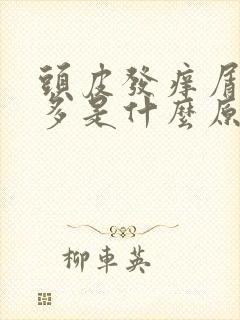 頭皮發癢屑
多是什麼原
柳車英